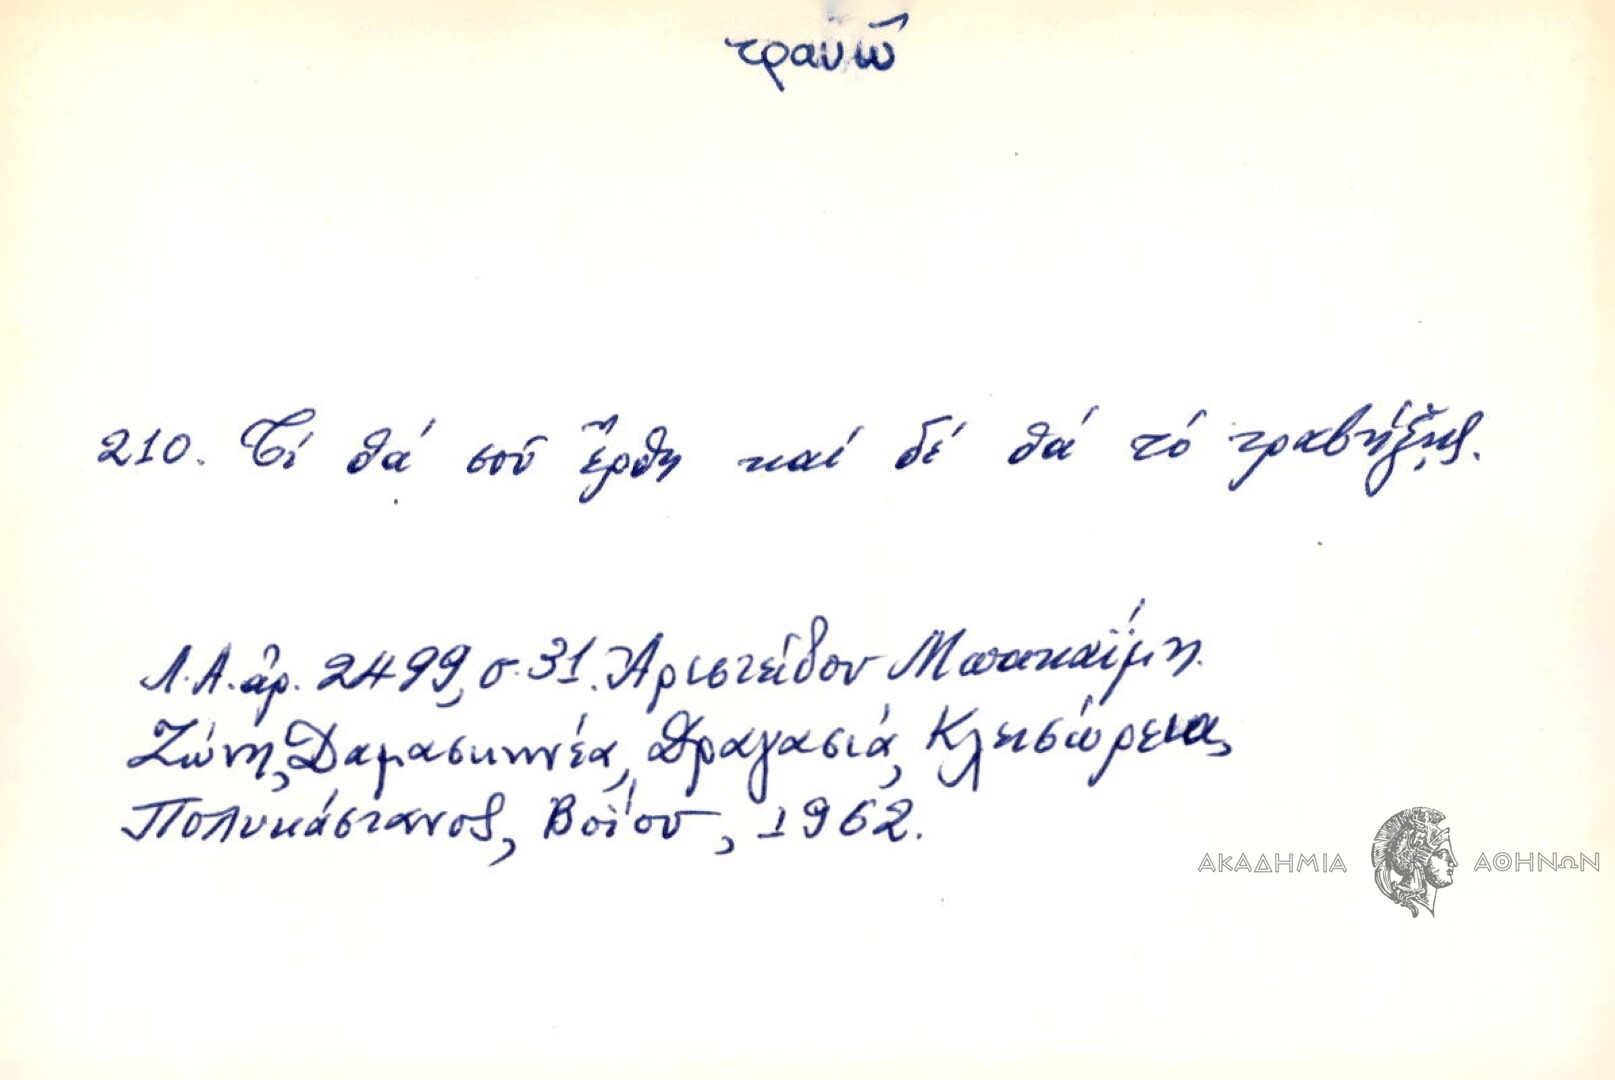 τραυῶ
210. Τί θά σοῦ ἔρθη καί δέ θά τό τραβήξῃς.
Λ.Α. ἀρ. 2499, σ. 31. Ἀριστείδου Μπακαΐμη.
Ζώνη, Δαμασκηνέα, Δραγασιά, Κλεισώρεια,
Πολυκάστανος, Βοΐου, 1962.
ΑΚΑΔΗΜΙΑ ΑΘΗΝΩΝ